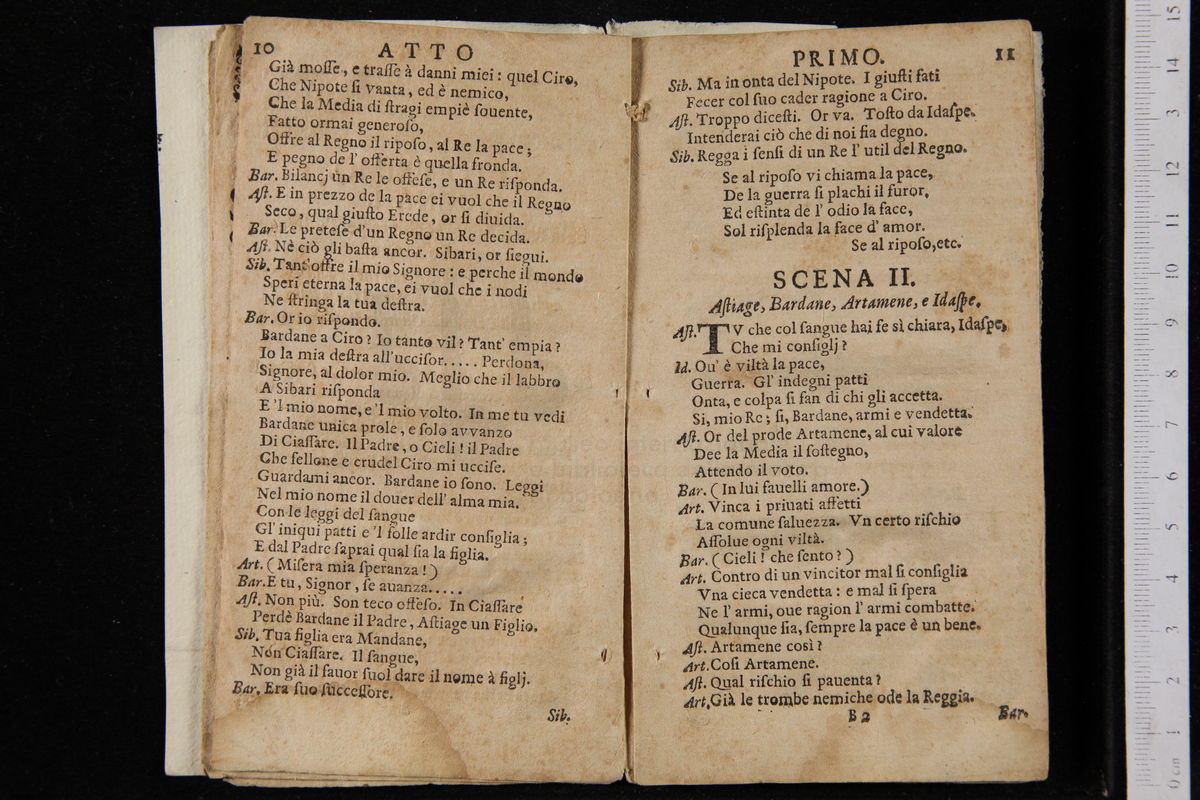 10 ATTO
Già moſſe, e traſſe à danni miei: quel Ciro,
Che Nipote ſi vanta, ed è nemico,
Che la Media di ſtragi empiè ſouente,
Fatto ormai generoſo,
Offre al Regno il ripoſo, al Re la pace;
E pegno de l' offerta è quella fronda.
Bar. Bilancj un Re le offeſe, e un Re riſponda.
Aſt. E in prezzo de la pace ei vuol che il Regno
Seco, qual giuſto Erede, or ſi diuida.
Bar. Le preteſe d'un Regno un Re decida.
Aſt. Nè ciò gli baſta ancor. Sibari, or ſiegui.
Sib. Tant'offre il mio Signore: e perche il mondo
Speri eterna la pace, ei vuol che i nodi
Ne ſtringa la tua deſtra.
Bar. Or io riſpondo.
Bardane a Ciro? Io tanto vil? Tant' empia?
Io la mia deſtra all'ucciſor..... Perdona,
Signore, al dolor mio. Meglio che il labbro
A Sibari riſponda
E 'l mio nome, e 'l mio volto. In me tu vedi
Bardane unica prole, e ſolo avvanzo
Di Ciaſſare. Il Padre, o Cieli! il Padre
Che fellone e crudel Ciro mi ucciſe.
Guardami ancor. Bardane io ſono. Leggi
Nel mio nome il douer dell' alma mia.
Con le leggi del ſangue
Gl' iniqui patti e 'l folle ardir conſiglia;
E dal Padre ſaprai qual ſia la figlia.
Art. (Miſera mia ſperanza!)
Bar. E tu, Signor, ſe auanza.....
Aſt. Non più. Son teco offeſo. In Ciaſſare
Perdè Bardane il Padre, Aſtiage un Figlio.
Sib. Tua figlia era Mandane,
Non Ciaſſare. Il ſangue,
Non già il fauor ſuol dare il nome à figlj.
Bar. Era ſuo ſucceſſore.
Sib.
PRIMO. 11
Sib. Ma in onta del Nipote. I giuſti fati
Fecer col ſuo cader ragione a Ciro.
Aſt. Troppo diceſti. Or va. Toſto da Idaſpe
Intenderai ciò che di noi ſia degno.
Sib. Regga i ſenſi di un Re l' util del Regno.
Se al ripoſo vi chiama la pace,
De la guerra ſi plachi il furor,
Ed eſtinta de l' odio la face,
Sol riſplenda la face d' amor.
Se al ripoſo, etc.
SCENA II.
Aſtiage, Bardane, Artamene, e Idaſpe.
Aſt. TV che col ſangue hai ſe sì chiara, Idaſpe,
Che mi conſiglj?
Id. Ou' è viltà la pace,
Guerra. Gl' indegni patti
Onta, e colpa ſi fan di chi gli accetta.
Si, mio Re; ſi, Bardane, armi e vendetta.
Aſt. Or del prode Artamene, al cui valore
Dee la Media il ſoſtegno,
Attendo il voto.
Bar. (In lui fauelli amore.)
Art. Vinca i priuati affetti
La comune ſaluezza. Vn certo riſchio
Aſſolue ogni viltà.
Bar. (Cieli! che ſento?)
Art. Contro di un vincitor mal ſi conſiglia
Vna cieca vendetta: e mal ſi ſpera
Ne l' armi, oue ragion l' armi combatte.
Qualunque ſia, ſempre la pace è un bene.
Aſt. Artamene così?
Art. Coſi Artamene.
Aſt. Qual riſchio ſi pauenta?
Art. Già le trombe nemiche ode la Reggia.
B 2 Bar.